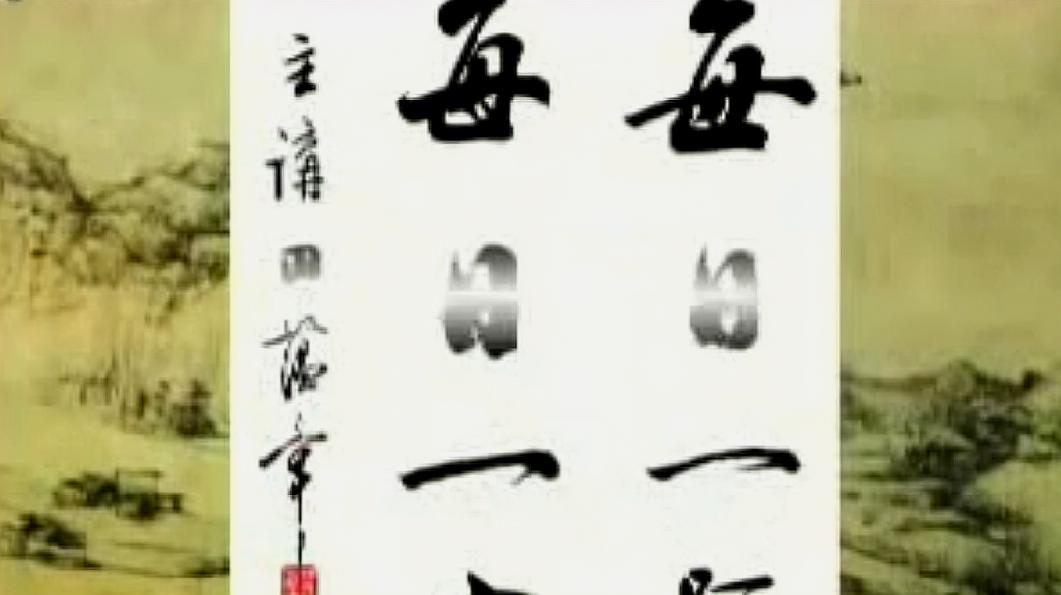 每日一
每日一
主講田蘊章